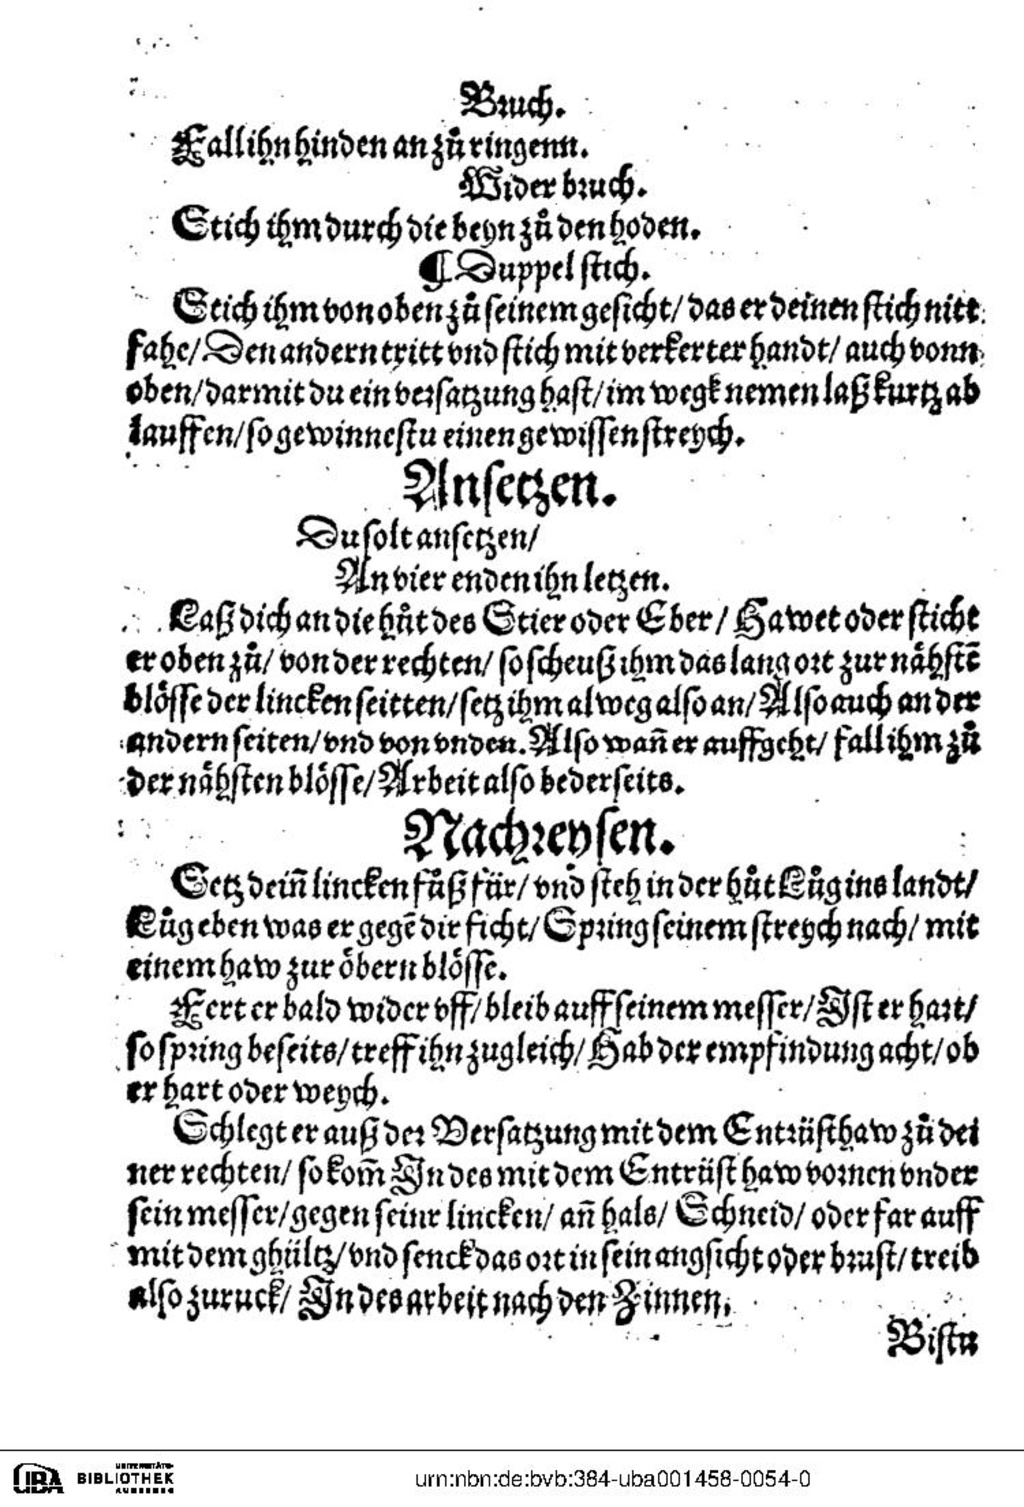 Bruch.
Fall ihn hinden an zů ringenn.
Wider bruch.
Stich ihm durch die beyn zů den hoden.
¶ Duppel stich.
Stich ihm von oben zů seinem gesicht/ das er deinen stich nitt
fahe/ Den andern tritt vnd stich mit verkerter handt/ auch vonn
oben/ darmit du ein versatzung hast/ im wegk nemen laß kurtz ab
lauffen/ so gewinnestu einen gewissen streych.
Ansetzen.
Du solt ansetzen/
An vier enden ihn letzen.
Laß dich an die hůt des Stier oder Eber/ Hawet oder sticht
er oben zů/ von der rechten/ so scheuß ihm das lang ort zur nähstẽ
blösse der lincken seitten/ setz ihm al weg also an/ Also auch an der
andern seiten/ vnd von vnden. Also wañ er auffgeht/ fall ihm zů
der nähsten blösse/ Arbeit also bederseits.
Nachreysen.
Setz deiñ lincken fůß für/ vnd steh in der hůt Lůg ins landt/
Lůg eben was er gegẽ dir ficht/ Spring seinem streych nach/ mit
einem haw zur öbern blösse.
Fert er bald wider vff/ bleib auff seinem messer/ Ist er hart/
so spring beseits/ treff ihn zugleich/ Hab der empfindung acht/ ob
er hart oder weych.
Schlegt er auß der Versatzung mit dem Entrüsthaw zů dei
ner rechten/ so kom̃ In des mit dem Entrüst haw vornen vnder
sein messer/ gegen seinr lincken/ añ hals/ Schneid/ oder far auff
mit dem ghültz/ vnd senck das ort in sein angsicht oder brust/ treib
also zuruck/ In des arbeit nach den Zinnen.
Bistu
UBA UNIVERSITÄTS-
BIBLIOTHEK
AUGSBURG
urn:nbn:de:bvb:384-uba001458-0054-0